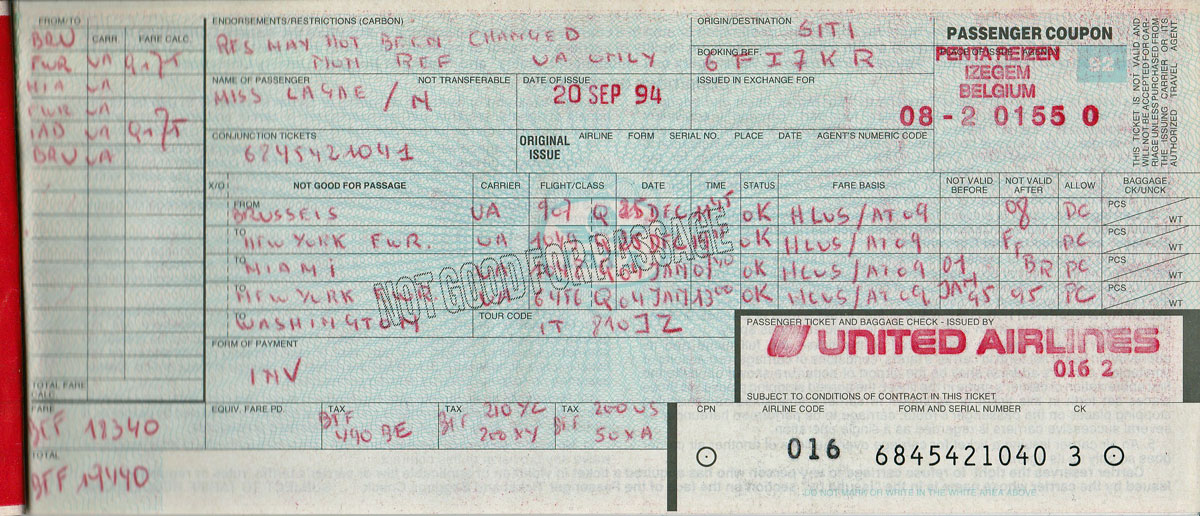 FROM/TO
BRU CARR. FARE CALC.
EWR UA 9175
MIA UA
EWR UA
IAD UA 9175
BRU UA
TOTAL FARE CALC.
FARE
BEF 18340
TOTAL
BEF 19440
ENDORSEMENTS/RESTRICTIONS (CARBON)
RES MAY NOT BEEN CHANGED
NON REF UA ONLY
NAME OF PASSENGER NOT TRANSFERABLE
MISS LAGAE /N
DATE OF ISSUE
20 SEP 94
ORIGIN/DESTINATION
SITI
BOOKING REF.
6FI7KR
ISSUED IN EXCHANGE FOR
PASSENGER COUPON
PLACE OF ISSUE - AGENCY
PENTA REIZEN
IZEGEM
BELGIUM
08-2 0155 0
THIS TICKET IS NOT VALID AND
WILL NOT BE ACCEPTED FOR CAR-
RIAGE UNLESS PURCHASED FROM
THE ISSUING CARRIER OR ITS
AUTHORIZED TRAVEL AGENT
CONJUNCTION TICKETS
6845421041
ORIGINAL ISSUE AIRLINE FORM SERIAL NO. PLACE DATE AGENT'S NUMERIC CODE
X/O NOT GOOD FOR PASSAGE CARRIER FLIGHT/CLASS DATE TIME STATUS FARE BASIS NOT VALID BEFORE NOT VALID AFTER ALLOW BAGGAGE CK/UNCK
FROM BRUSSELS UA 907 Q 25 DEC 1145 OK HLUS/AT09 08 PC PCS WT
TO NEW YORK EWR. UA Q 25 DEC OK HLUS/AT09 PC PCS WT
TO MIAMI UA JAN OK HLUS/AT09 01 BR PC PCS WT
TO NEW YORK UA 6456 Q 04 JAN 1300 OK HLUS/AT09 JAN 95 95 PC PCS WT
TO WASHINGTON
NOT GOOD FOR PASSAGE
TOUR CODE
IT
FORM OF PAYMENT
INV
EQUIV. FARE PD. TAX TAX TAX
BEF 440 BE BEF 210 YC 200 XY BEF 200 US 50 XA
PASSENGER TICKET AND BAGGAGE CHECK - ISSUED BY
UNITED AIRLINES
016 2
SUBJECT TO CONDITIONS OF CONTRACT IN THIS TICKET
CPN AIRLINE CODE FORM AND SERIAL NUMBER CK
016 6845421040 3
DO NOT MARK OR WRITE IN THE WHITE AREA ABOVE